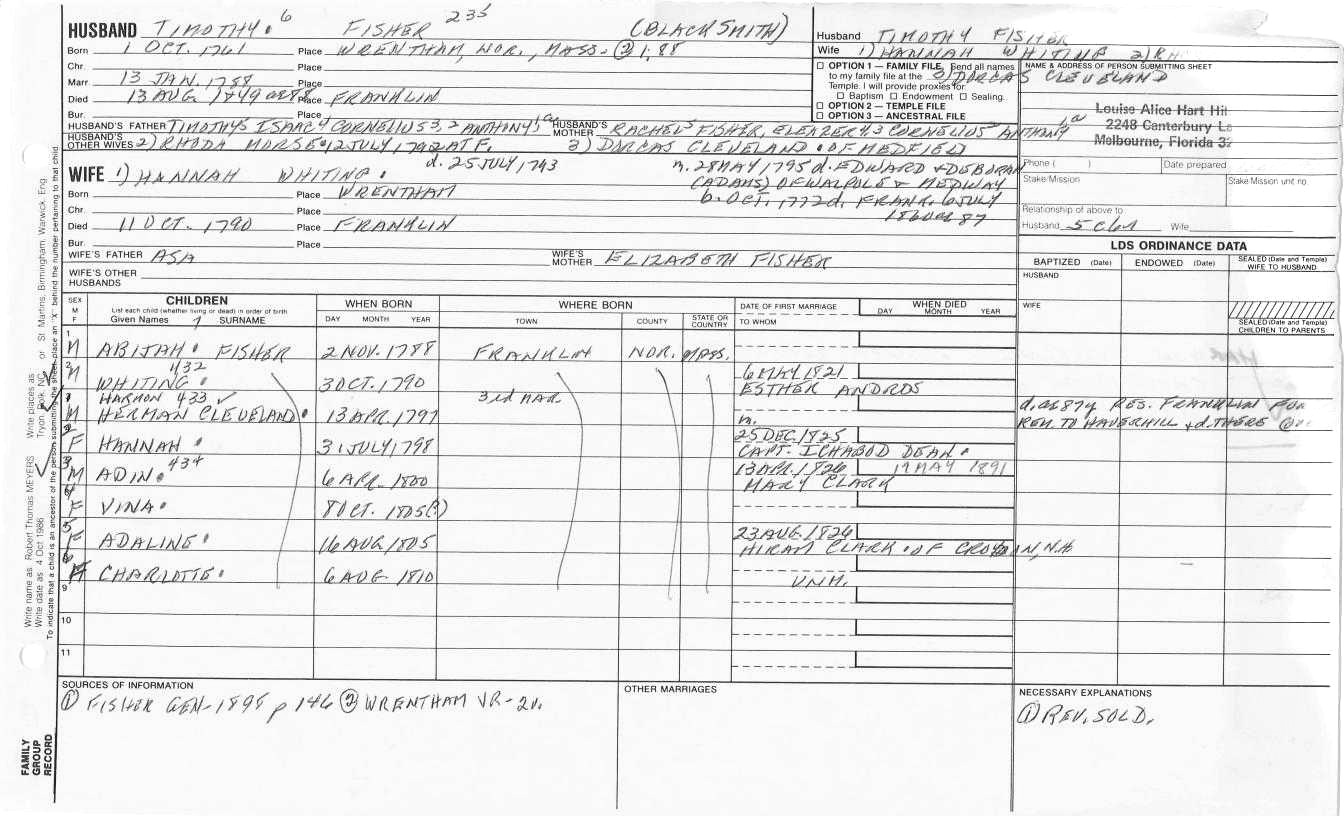 HUSBAND TIMOTHY. 6 FISHER 235 (BLACKSMITH)
Born 1 OCT. 1761 Place WRENTHAM, NOR, MASS. ② 1:88
Chr. Place
Marr 13 JAN. 1788 Place
Died 13 AUG 1849 Place FRANKLIN
Bur. Place
HUSBAND'S FATHER TIMOTHY5 ISAAC4 CORNELIUS3,2 ANTHONY1 HUSBAND'S MOTHER RACHEL5 FISHER, ELEAZER4,3 CORNELIUS2 ANTHONY
HUSBAND'S OTHER WIVES 2) RHODA MORSE 12 JULY 1792 AT F. 3) DORCAS CLEVELAND . OF MEDFIELD
d. 25 JULY, 1793 m. 28 MAY 1795 d. EDWARD + DEBORAH
WIFE 1) HANNAH WHITING. (ADAMS) OF WALPOLE + MEDWAY
Born Place WRENTHAM b. OCT. 1772 d. FRANK. 6 JULY
Chr. Place 87
Died 11 OCT. 1790 Place FRANKLIN
Bur. Place
WIFE'S FATHER ASA WIFE'S MOTHER ELIZABETH FISHER
WIFE'S OTHER HUSBANDS
Husband TIMOTHY FISHER
Wife 1) HANNAH WHITING 2) RH
3) DORCAS CLEVELAND
☐ OPTION 1 — FAMILY FILE Send all names
to my family file at the
Temple. I will provide proxies for:
☐ Baptism ☐ Endowment ☐ Sealing.
☐ OPTION 2 — TEMPLE FILE
☐ OPTION 3 — ANCESTRAL FILE
NAME & ADDRESS OF PERSON SUBMITTING SHEET
Louise Alice Hart Hil
2248 Canterbury La
Melbourne, Florida 32
Phone ( ) Date prepared
Stake/Mission Stake Mission unit no.
Relationship of above to
Husband Wife
LDS ORDINANCE DATA
BAPTIZED (Date) ENDOWED (Date) SEALED (Date and Temple) WIFE TO HUSBAND
HUSBAND
WIFE
SEALED (Date and Temple) CHILDREN TO PARENTS
SEX M F
CHILDREN
List each child (whether living or dead) in order of birth
Given Names 7 SURNAME
WHEN BORN
DAY MONTH YEAR
WHERE BORN
TOWN COUNTY STATE OR COUNTRY
DATE OF FIRST MARRIAGE
TO WHOM
WHEN DIED
DAY MONTH YEAR
1 M ABIJAH. FISHER 2 NOV. 1788 FRANKLIN NOR. MASS.
2 M WHITING. 432 3 OCT. 1790 6 MAY 1821
ESTHER ANDROS
1 M HARMON 433 ✓ 3rd MAR.
HERMAN CLEVELAND. 13 APR. 1797 m. d. RES. FRANKLIN
REM. TO HAVERHILL + d. THERE
2 F HANNAH. 31 JULY 1798 25 DEC. 1825
CAPT. ICHABOD DEAN.
3 M ADIN. 434 6 APR. 1800 13 APR. 1826 19 MAY 1891
MARY CLARK
4 F VINA. 8 OCT. 1805(?)
5 F ADALINE. 16 AUG 1805 23 AUG 1826
HIRAM CLARK . OF CROYDON, N.H
6 F CHARLOTTE. 6 AUG 1810 UNM.
9
10
11
SOURCES OF INFORMATION
① FISHER GEN-1898 p 146 ② WRENTHAM VR-2v.
OTHER MARRIAGES
NECESSARY EXPLANATIONS
① REV. SOLD.
Write name as Robert Thomas MEYERS Write places as Tryon, Polk, NC or St. Martins, Birmingham, Warwick, Eng.
Write date as 4 Oct 1986
To indicate that a child is an ancestor of the person submitting the sheet, place an "X" behind the number pertaining to that child.
FAMILY GROUP RECORD